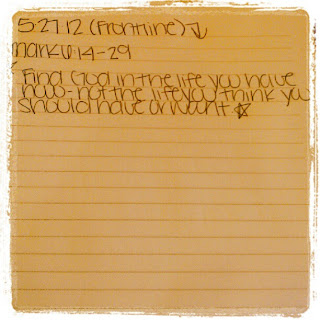 5.27.12 (Frontline)
Mark 6:14-29
Find God in the life you have
now - not the life you think you
should have or want